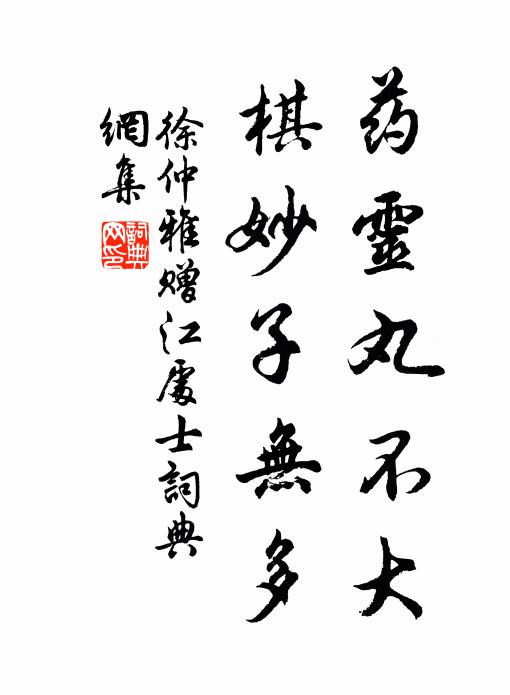 药靈丸不大
棋妙子無多
徐仲雅贈江處士詞典
網集
詞典
网印